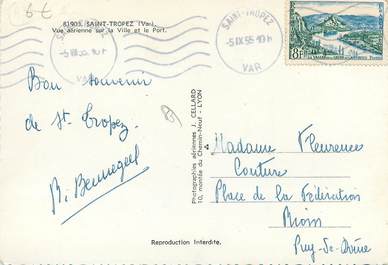 6€
81903. SAINT-TROPEZ (Var).
Vue aérienne sur la Ville et le Port.
SAINT-TROPEZ
-5 IX 55
VAR
8F
Bon souvenir
de St Tropez
Photographies aériennes J. CELLARD
10, montée du Chemin-Neuf - LYON
Madame Fleurence
Couture
Place de la Fédération
Riom
Puy-de-Dôme
Reproduction Interdite.